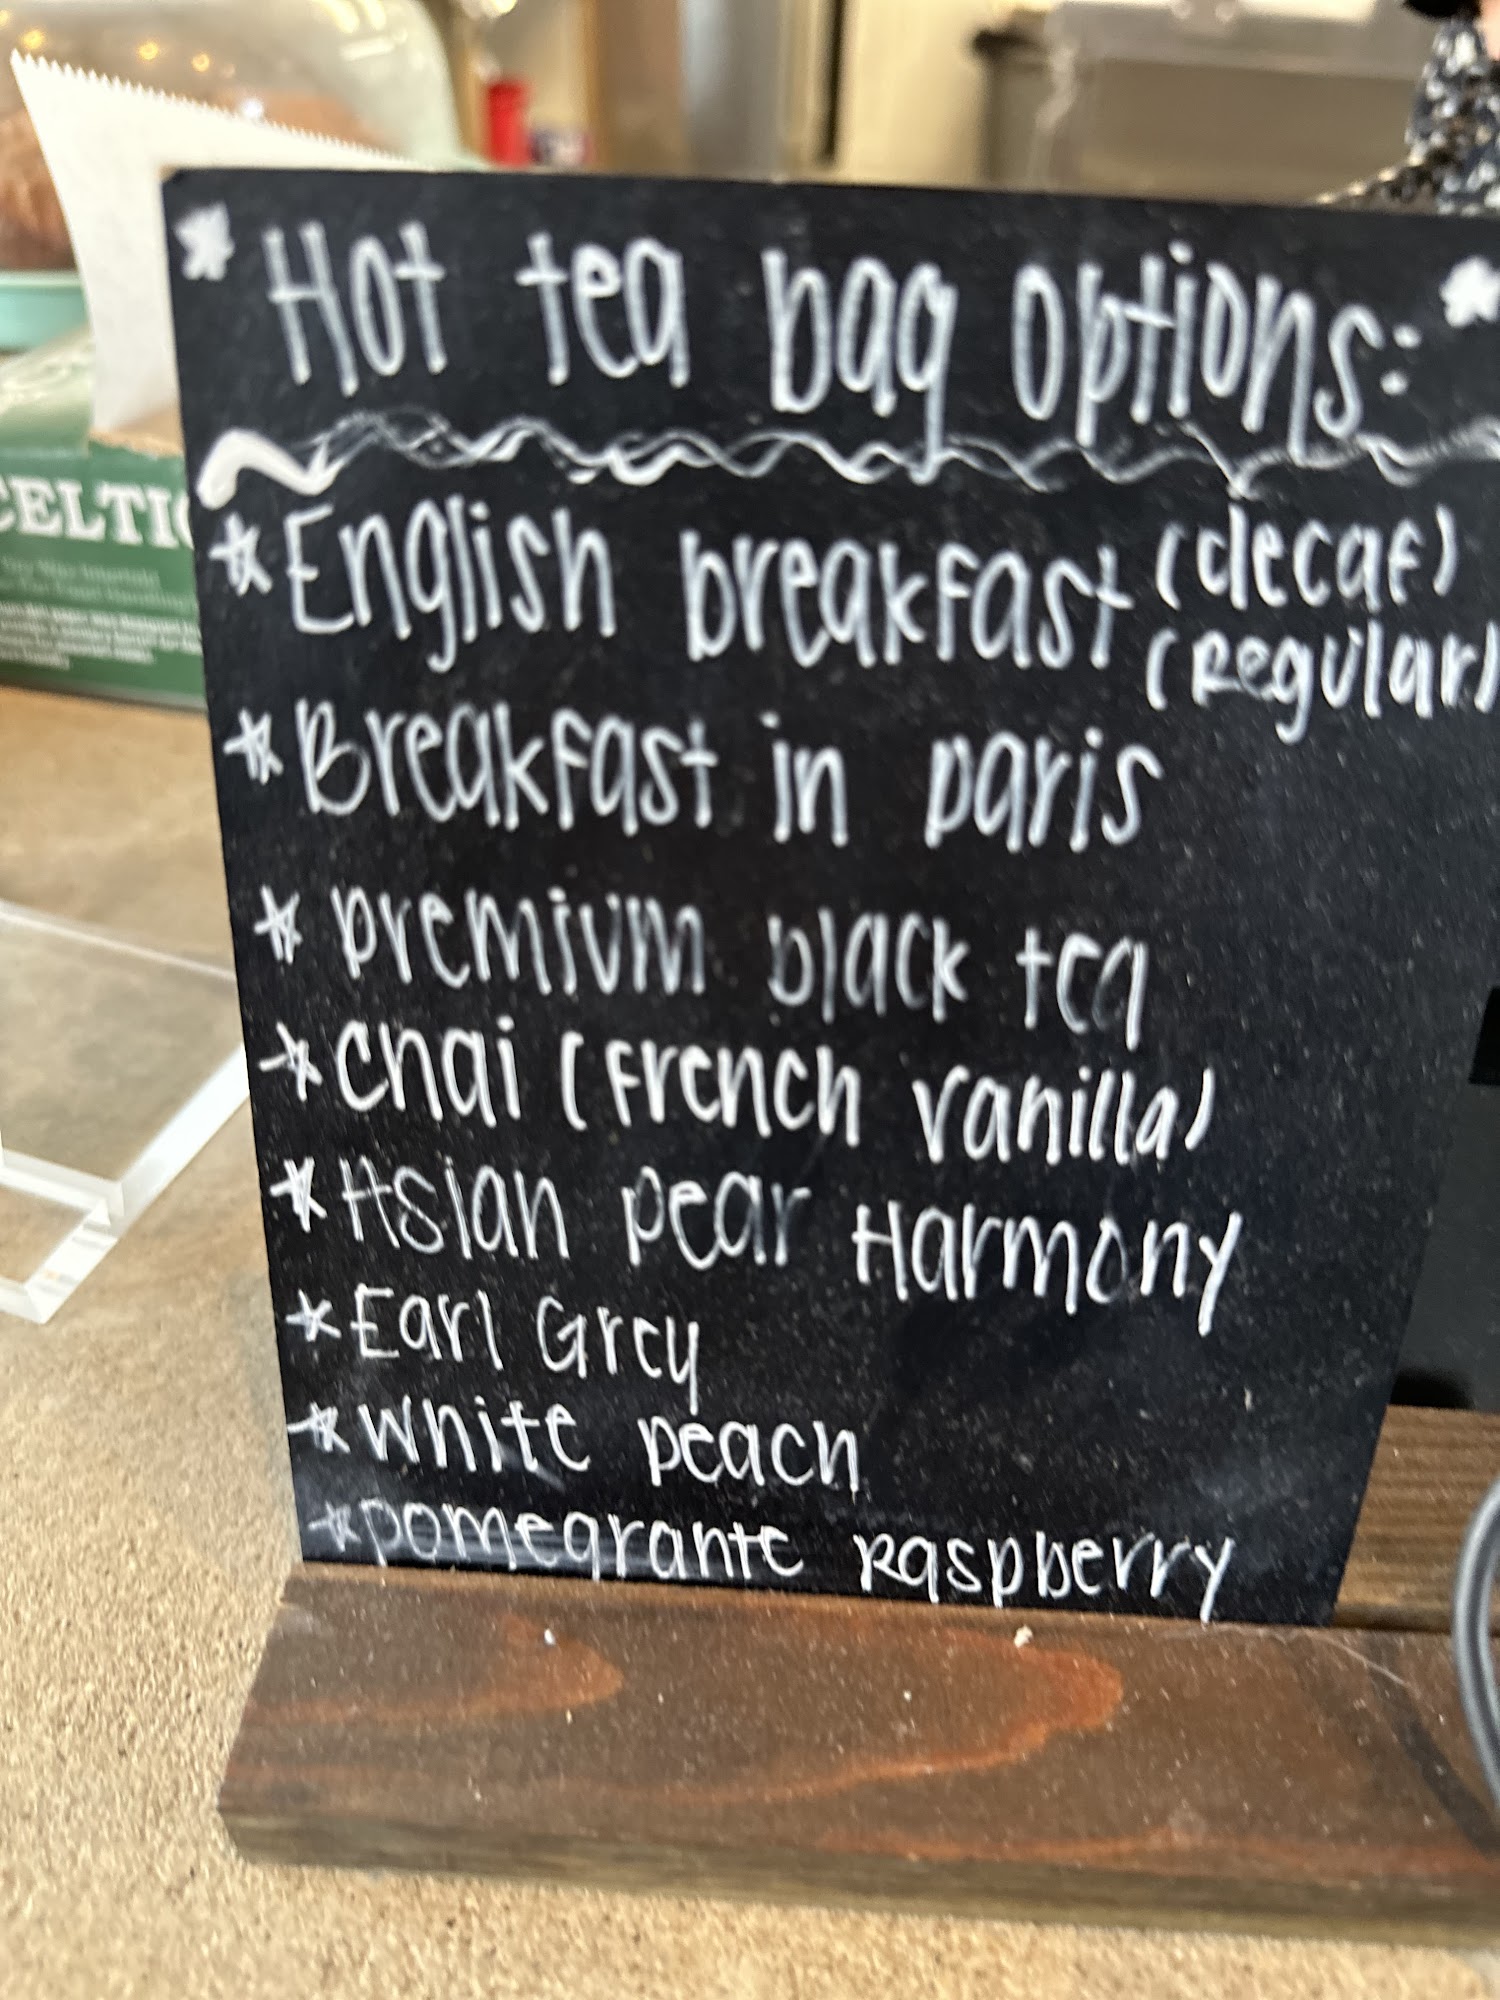 * Hot tea bag options: *
* English breakfast (decaf)
(Regular)
* Breakfast in paris
* premium black tea
* chai (French vanilla)
* Asian pear Harmony
* Earl Grey
* white peach
* pomegrante Raspberry
CELTIC